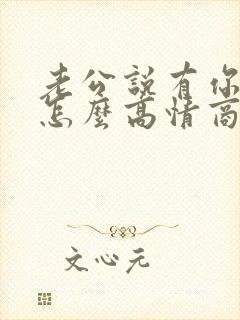 老公説有你
怎麼高情商
文心元